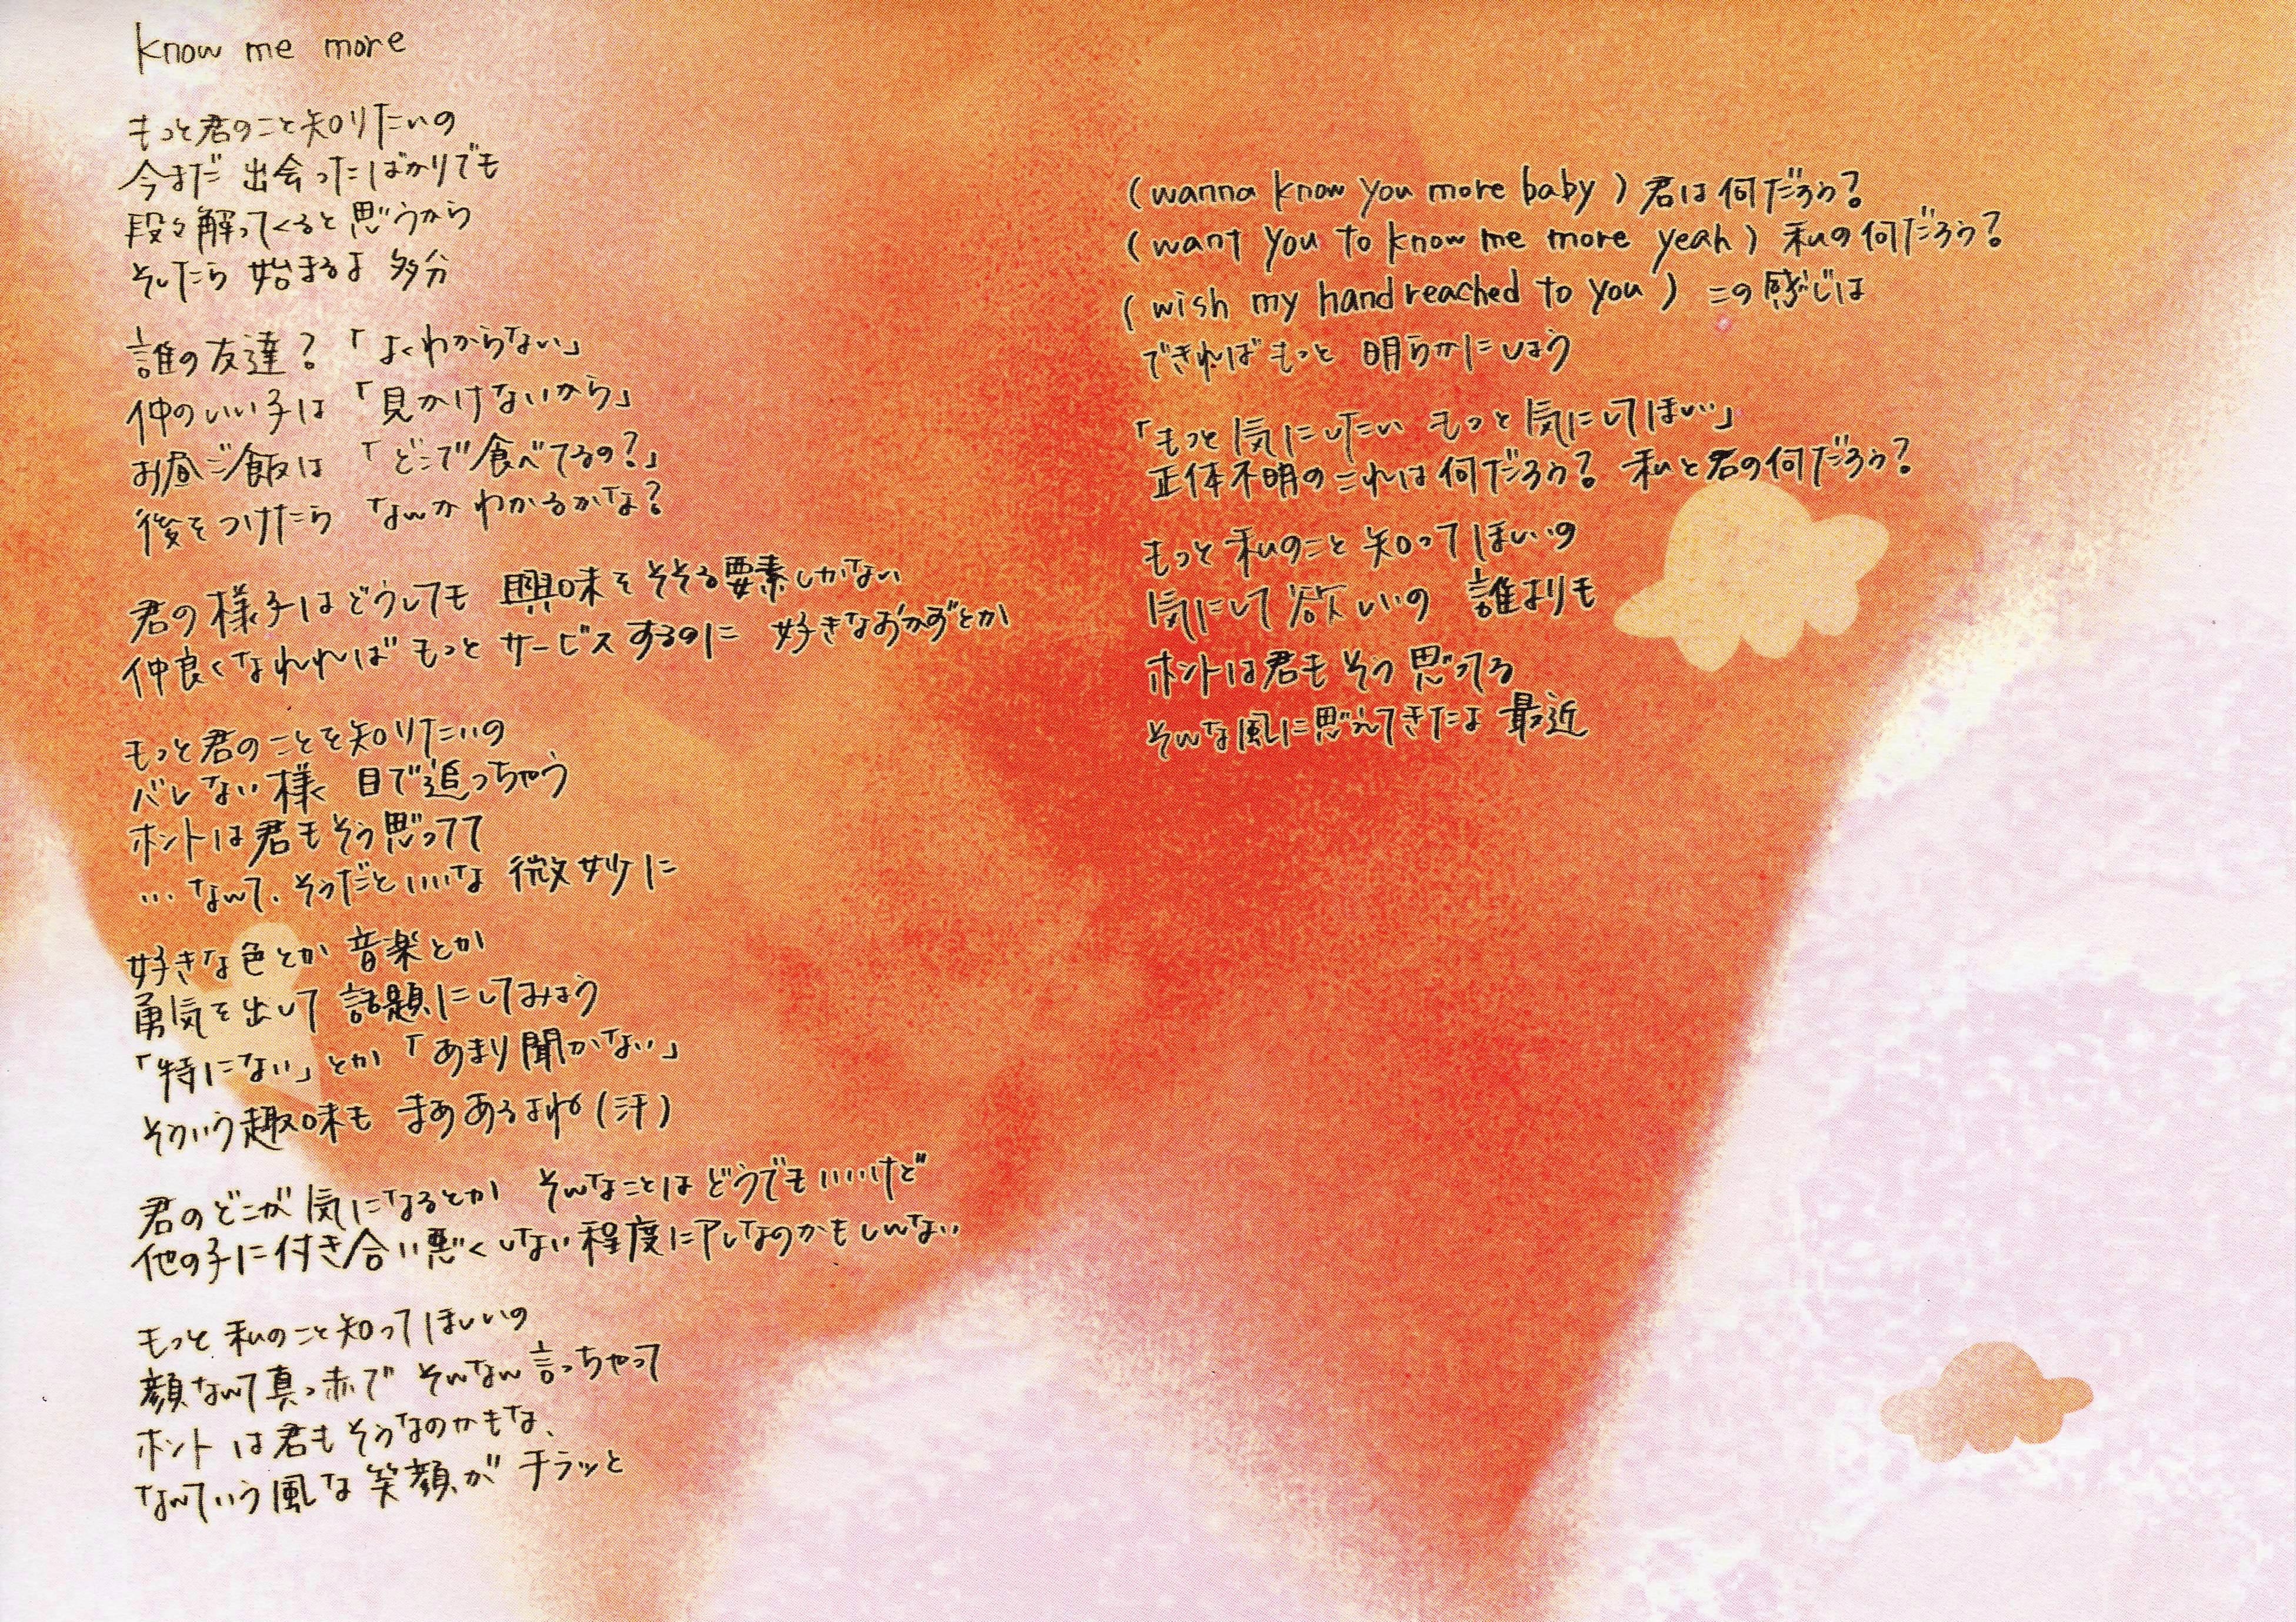 know me more
もっと君のこと知りたいの
今まだ 出会ったばかりでも
段々解ってくると思うから
そしたら 始まるよ 多分
誰の友達?「よくわからない」
仲のいい子は「見かけないから」
お昼ご飯は「どこで食べてるの?」
後をつけたら なんかわかるかな?
君の様子はどうしても 興味をそそる要素しかない
仲良くなれればもっと サービスするのに 好きなおかずとか
もっと君のことを知りたいの
バレない様 目で追っちゃう
ホントは君もそう思ってて
…なんて、そうだといいな 微妙に
好きな色とか 音楽とか
勇気を出して 話題にしてみよう
「特にない」とか「あまり聞かない」
そういう趣味も まああるよね(汗)
君のどこが気になるとか そんなことはどうでもいいけど
他の子に付き合い悪くしない程度にアレなのかもしんない
もっと 私のこと知ってほしいの
顔なんて真っ赤で そんなん言っちゃって
ホントは君もそうなのかもな、
なんていう風な笑顔が チラッと
(wanna know you more baby) 君は何だろう?
(want you to know me more yeah) 私の何だろう?
(wish my hand reached to you) この感じは
できればもっと 明らかにしよう
「もっと気にしたい もっと気にしてほしい」
正体不明のこれは何だろう? 私と君の何だろう?
もっと私のこと 知ってほしいの
気にして欲しいの 誰よりも
ホントは君も そう思ってる
そんな風に思えてきたよ 最近